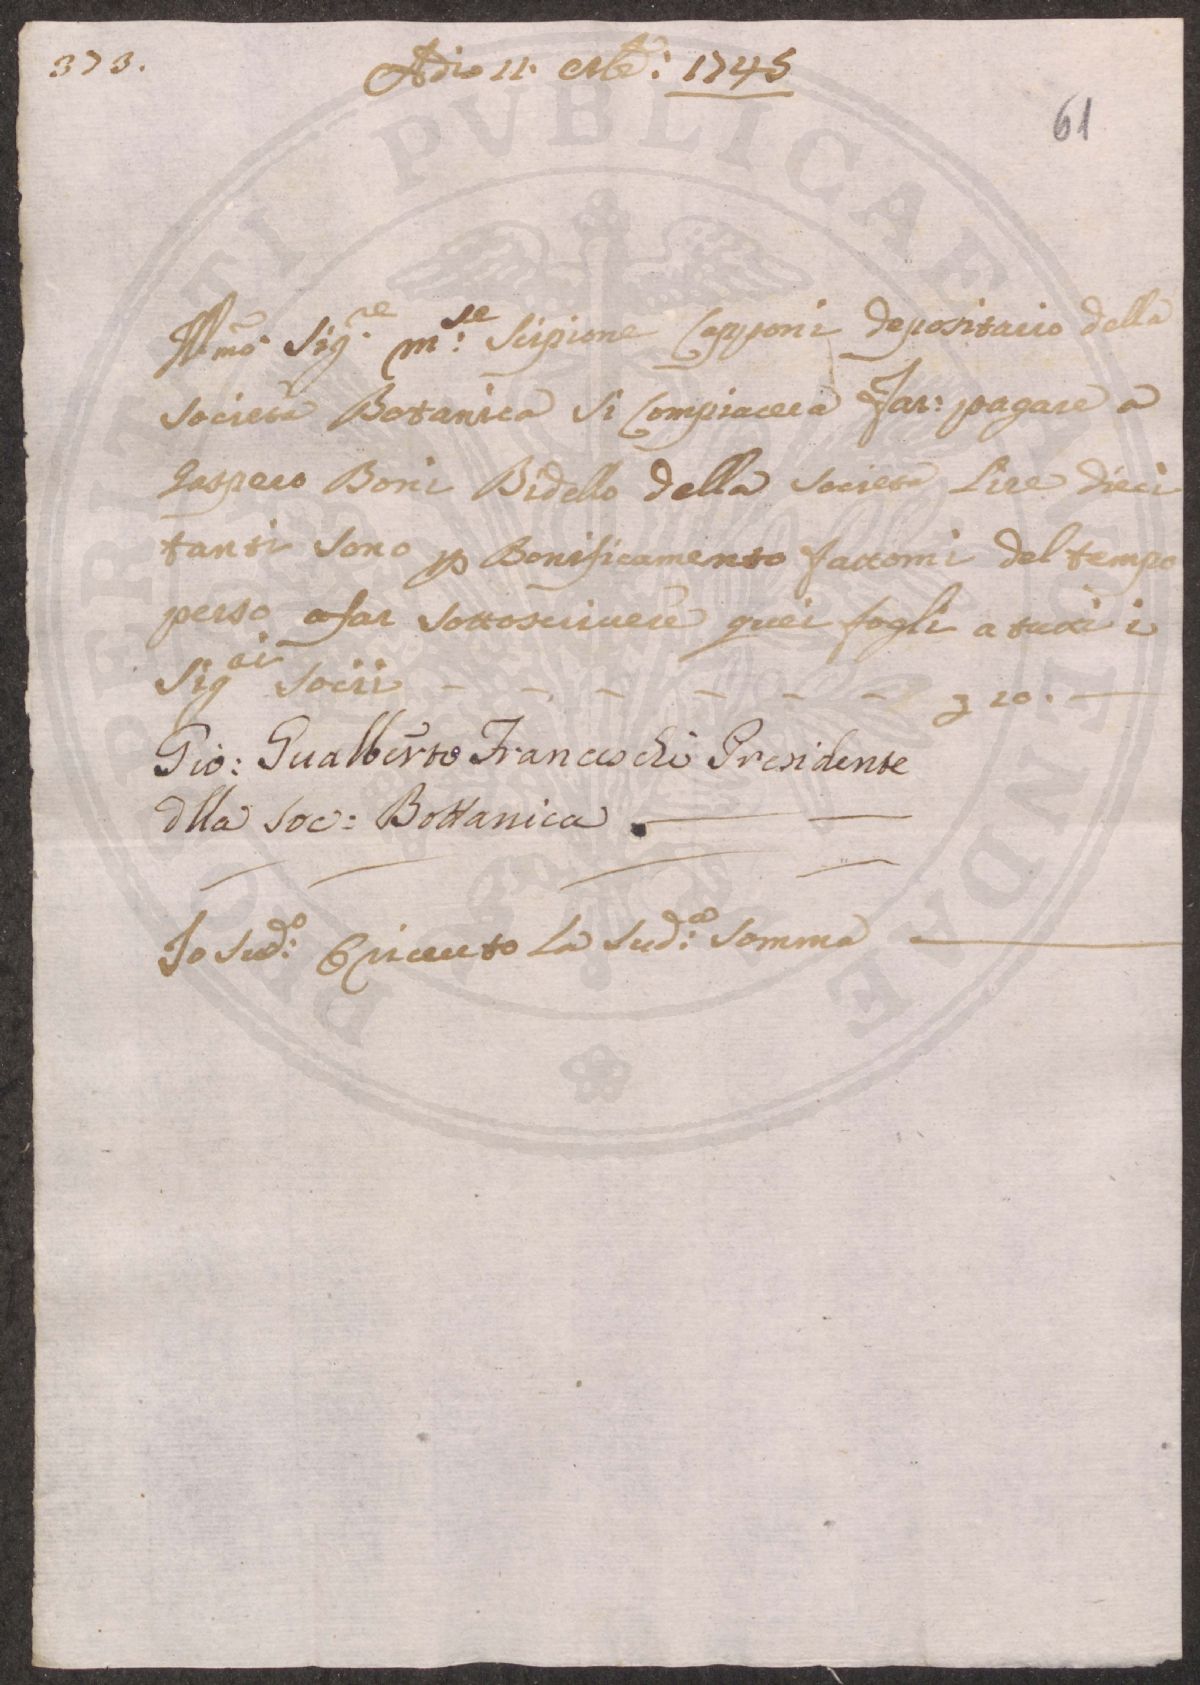 373.
Adio 11. 1745
61
Illmo Sig.re m:se Scipione Capponi depositario della
Società Botanica si Compiacerà far: pagare a
Gaspero Boni Bidello della Società Lire dieci
tanti sono p Bonificamento fattomi del tempo
perso a far sottoscrivere quei fogli a tutti i
Sig.ri Socii - - - - - - 10. —
Gio: Gualberto Franceschi Presidente
dlla Soc: Bottanica
Io Sud:o Riceuto La Sud:a Somma
PROSPERITATI PVBLICAE